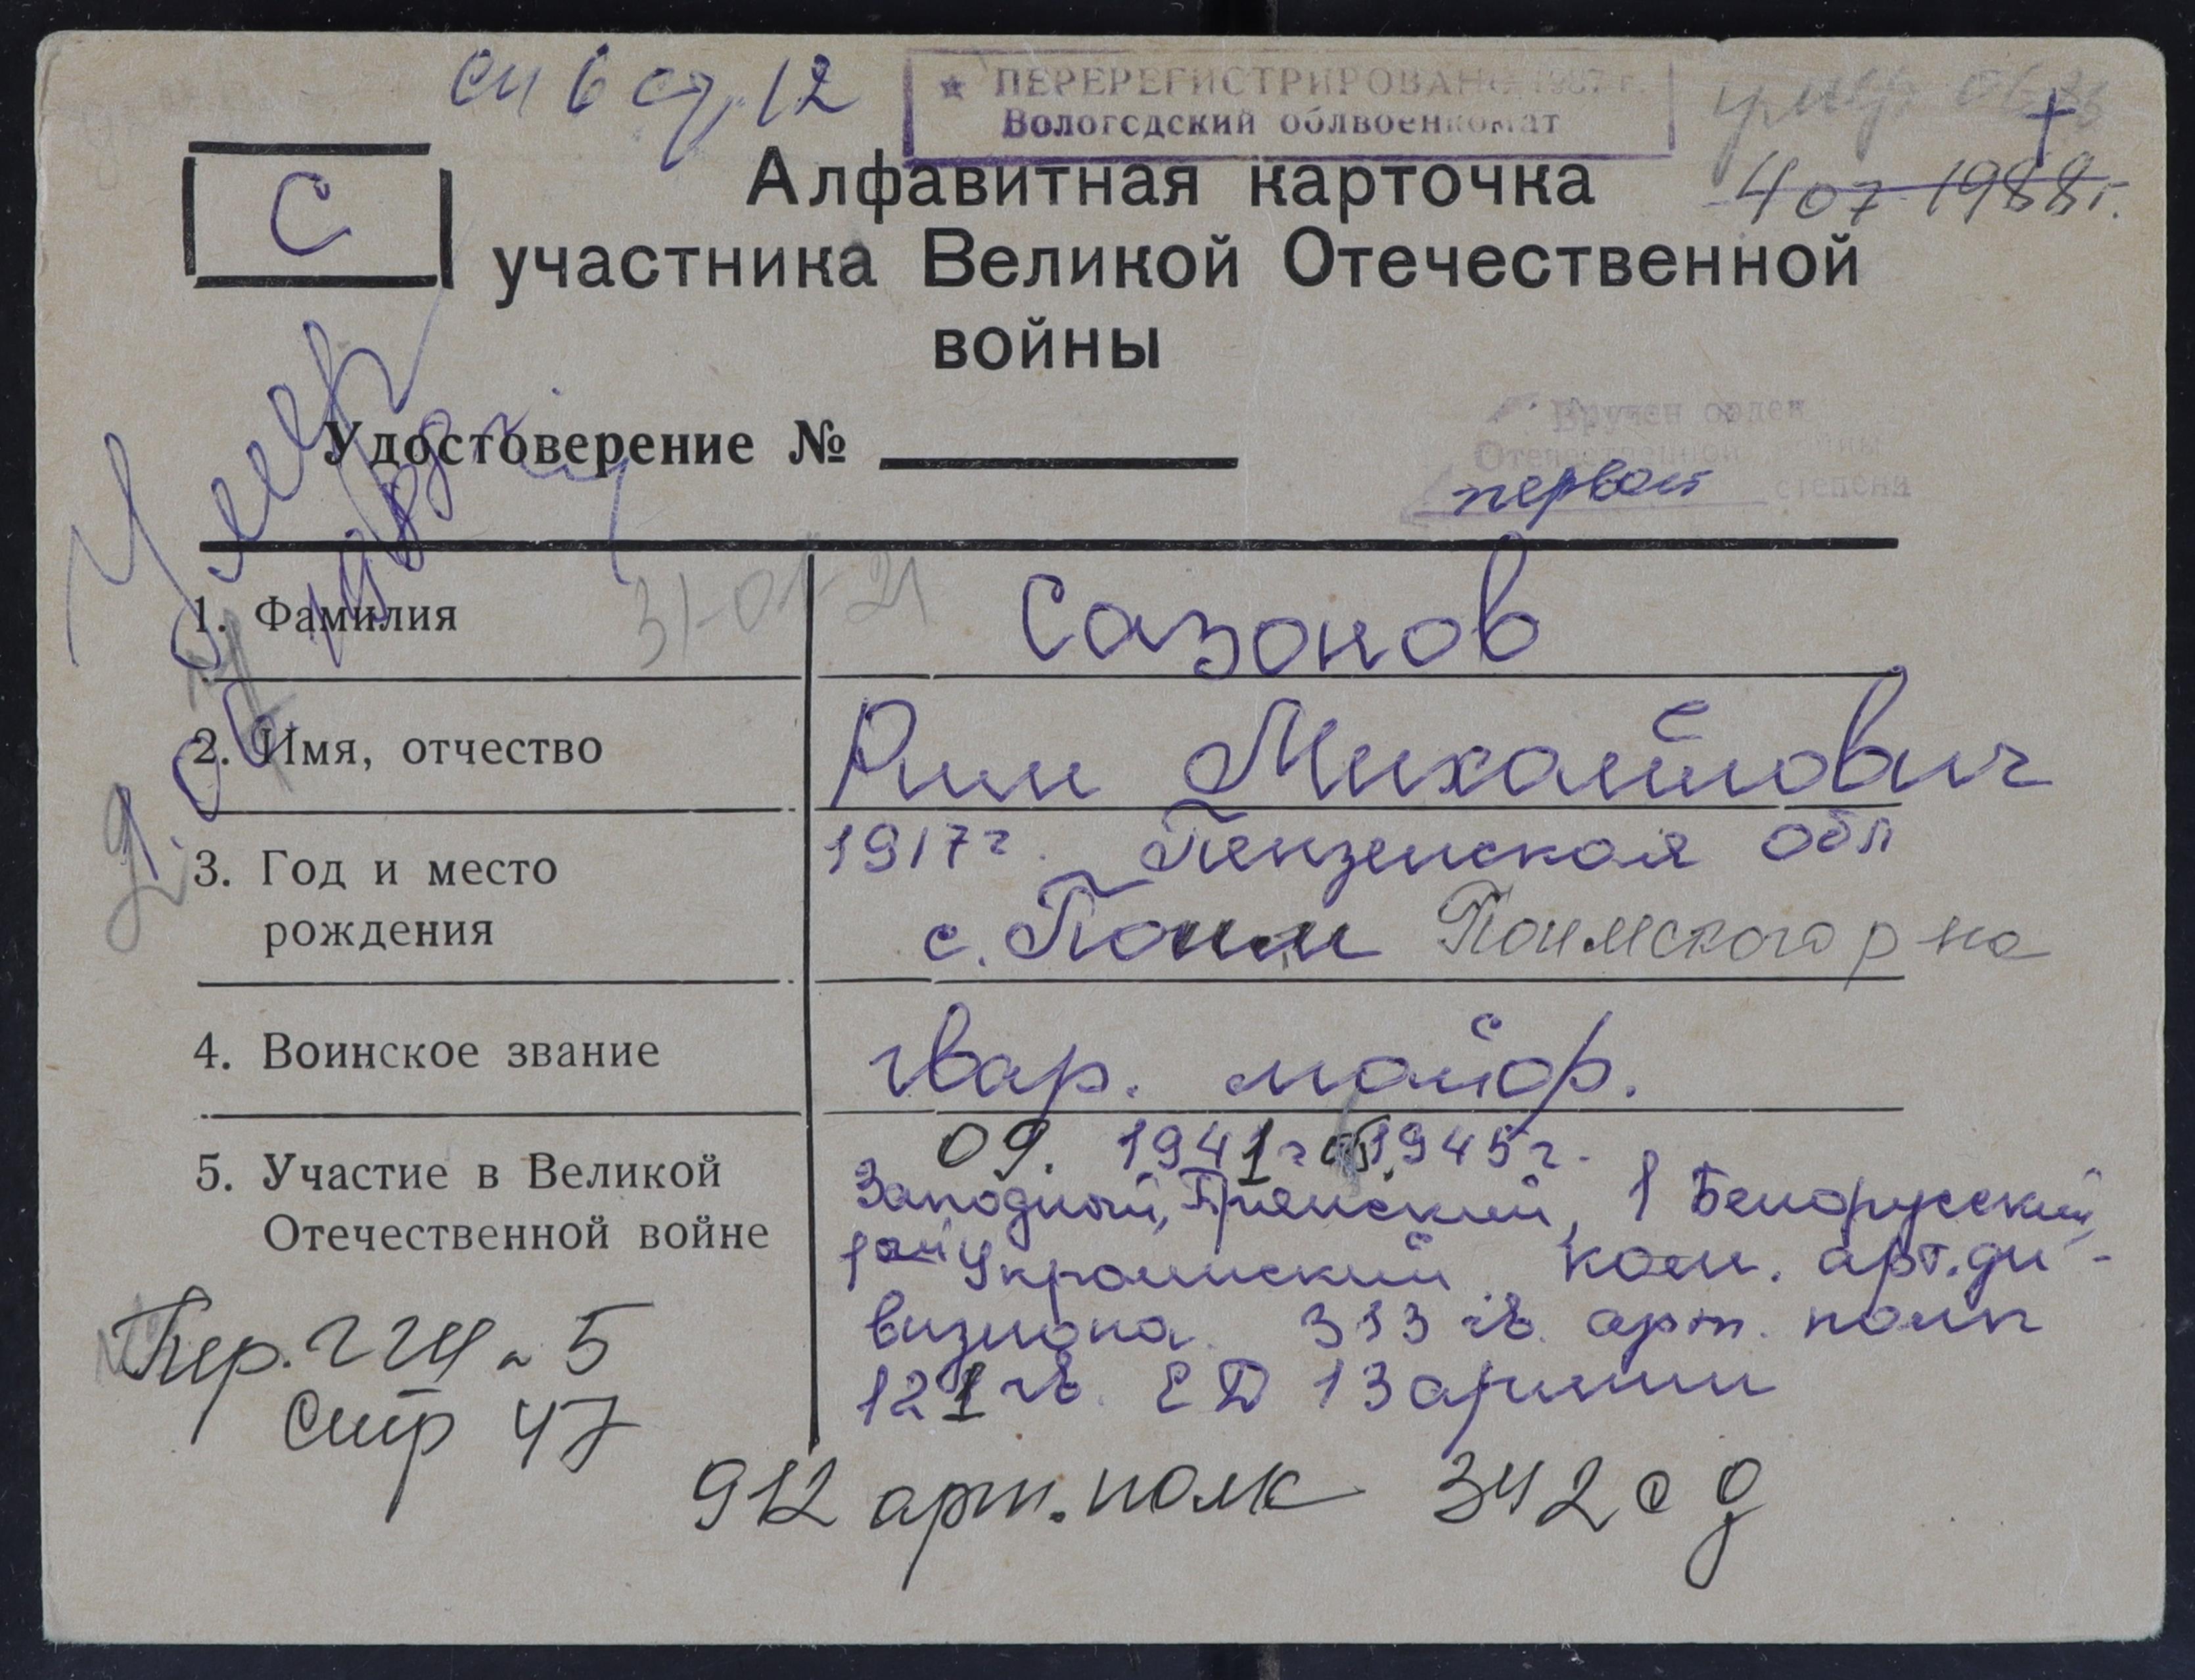 ПЕРЕРЕГИСТРИРОВАНО 1987 г.
Вологодский облвоенкомат
С
4 07 1988г.
Алфавитная карточка
участника Великой Отечественной
войны
Умер
Удостоверение №
Вручен орден
Отечественной войны
первой степени
31-01-21
1. Фамилия
Сазонов
2. Имя, отчество
Рим Михайлович
3. Год и место
рождения
1917г. Пензенская обл
с. Поим Поимского р на
4. Воинское звание
гвар. майор.
5. Участие в Великой
Отечественной войне
09. 1941г 1945г.
Западный, Брянский, 1 Белорусский,
1ый Украинский ком. арт. ди-
визиона 313 гв. арт. полк
121 гв. СД 13 армии
Стр 47
912 арт. полк 342 с д